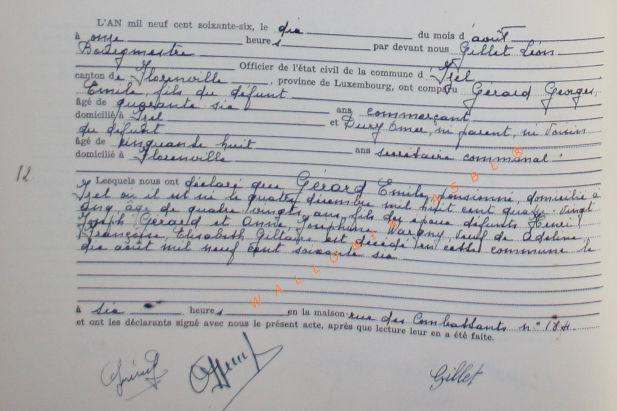 L'AN mil neuf cent soixante-six, le dix du mois d'août
à onze heures par devant nous Gillet Léon
Bourgmestre
Officier de l'état civil de la commune d'Izel
canton de Florenville, province de Luxembourg, ont comparu Gérard Georges,
Emile, fils du défunt
âgé de quarante six ans commerçant
domicilié à Izel et Dury Omer, ni parent, ni voisin
du défunt
âgé de cinquante huit ans secrétaire communal
domicilié à Florenville
12
Lesquels nous ont déclaré que Gérard Emile, pensionné, domicilié à
Izel où il est né le quatre décembre mil huit cent quatre-vingt
cinq, âgé de quatre vingts ans fils des époux défunts Henri
Joseph Gérard et Anne, Joséphine, veuf de Adeline
Françoise, Elisabeth Giltaire est décédé en cette commune le
dix août mil neuf cent soixante six
à six heures en la maison rue des Combattants n° 184
et ont les déclarants signé avec nous le présent acte, après que lecture leur en a été faite.
Gillet
WALLONIE NSBLB